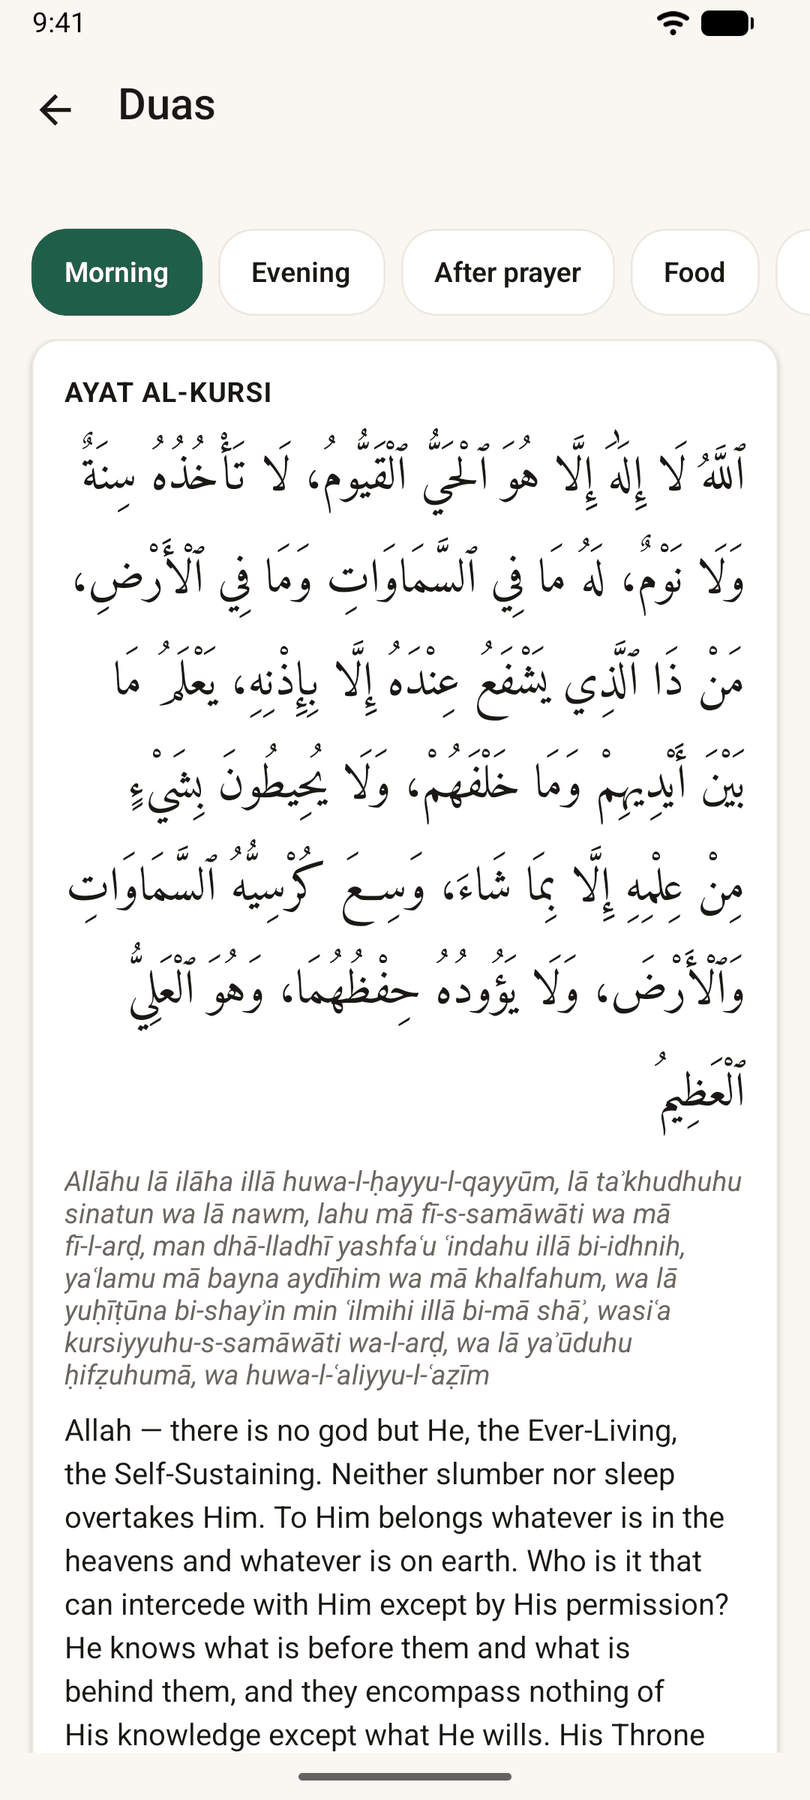 9:41
Duas
Morning
Evening
After prayer
Food
AYAT AL-KURSI
ٱللَّهُ لَا إِلَٰهَ إِلَّا هُوَ ٱلْحَيُّ ٱلْقَيُّومُ، لَا تَأْخُذُهُ سِنَةٌ
وَلَا نَوْمٌ، لَهُ مَا فِي ٱلسَّمَاوَاتِ وَمَا فِي ٱلْأَرْضِ،
مَنْ ذَا ٱلَّذِي يَشْفَعُ عِنْدَهُ إِلَّا بِإِذْنِهِ، يَعْلَمُ مَا
بَيْنَ أَيْدِيهِمْ وَمَا خَلْفَهُمْ، وَلَا يُحِيطُونَ بِشَيْءٍ
مِنْ عِلْمِهِ إِلَّا بِمَا شَاءَ، وَسِعَ كُرْسِيُّهُ ٱلسَّمَاوَاتِ
وَٱلْأَرْضَ، وَلَا يَؤُودُهُ حِفْظُهُمَا، وَهُوَ ٱلْعَلِيُّ
ٱلْعَظِيمُ
Allāhu lā ilāha illā huwa-l-ḥayyu-l-qayyūm, lā taʾkhudhuhu
sinatun wa lā nawm, lahu mā fī-s-samāwāti wa mā
fī-l-arḍ, man dhā-lladhī yashfaʿu ʿindahu illā bi-idhnih,
yaʿlamu mā bayna aydīhim wa mā khalfahum, wa lā
yuḥīṭūna bi-shayʾin min ʿilmihi illā bi-mā shāʾ, wasiʿa
kursiyyuhu-s-samāwāti wa-l-arḍ, wa lā yaʾūduhu
ḥifẓuhumā, wa huwa-l-ʿaliyyu-l-ʿaẓīm
Allah — there is no god but He, the Ever-Living,
the Self-Sustaining. Neither slumber nor sleep
overtakes Him. To Him belongs whatever is in the
heavens and whatever is on earth. Who is it that
can intercede with Him except by His permission?
He knows what is before them and what is
behind them, and they encompass nothing of
His knowledge except what He wills. His Throne